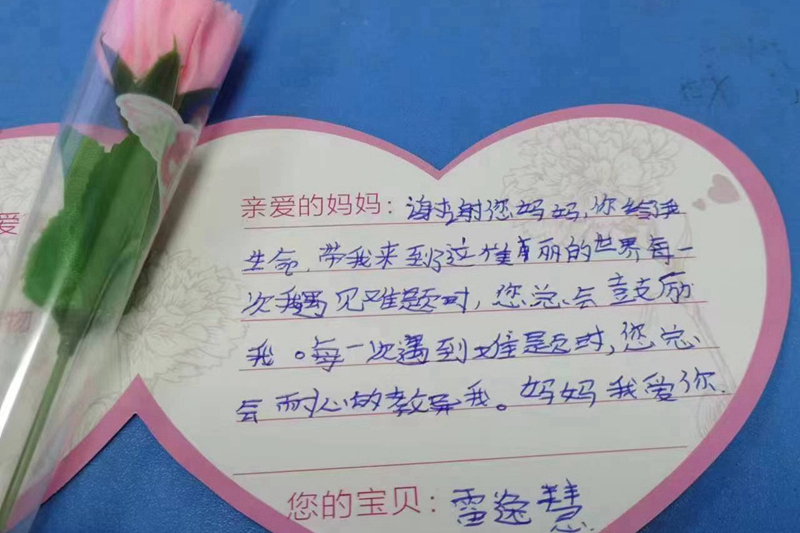 爱
物
亲爱的妈妈：谢谢您妈妈，你给我
生命，带我来到了这丽的世界每一
次我遇见难题时，您总会鼓励
我。每一次遇到难题时，您总
会耐心的教导我。妈妈我爱你.
您的宝贝：雷逸慧